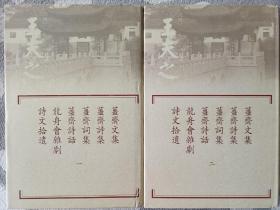 王夫之
薑齋文集
薑齋詩集
薑齋詞集
薑齋詩話
龍舟會雜劇
詩文拾遺
一
王夫之
薑齋文集
薑齋詩集
薑齋詞集
薑齋詩話
龍舟會雜劇
詩文拾遺
二